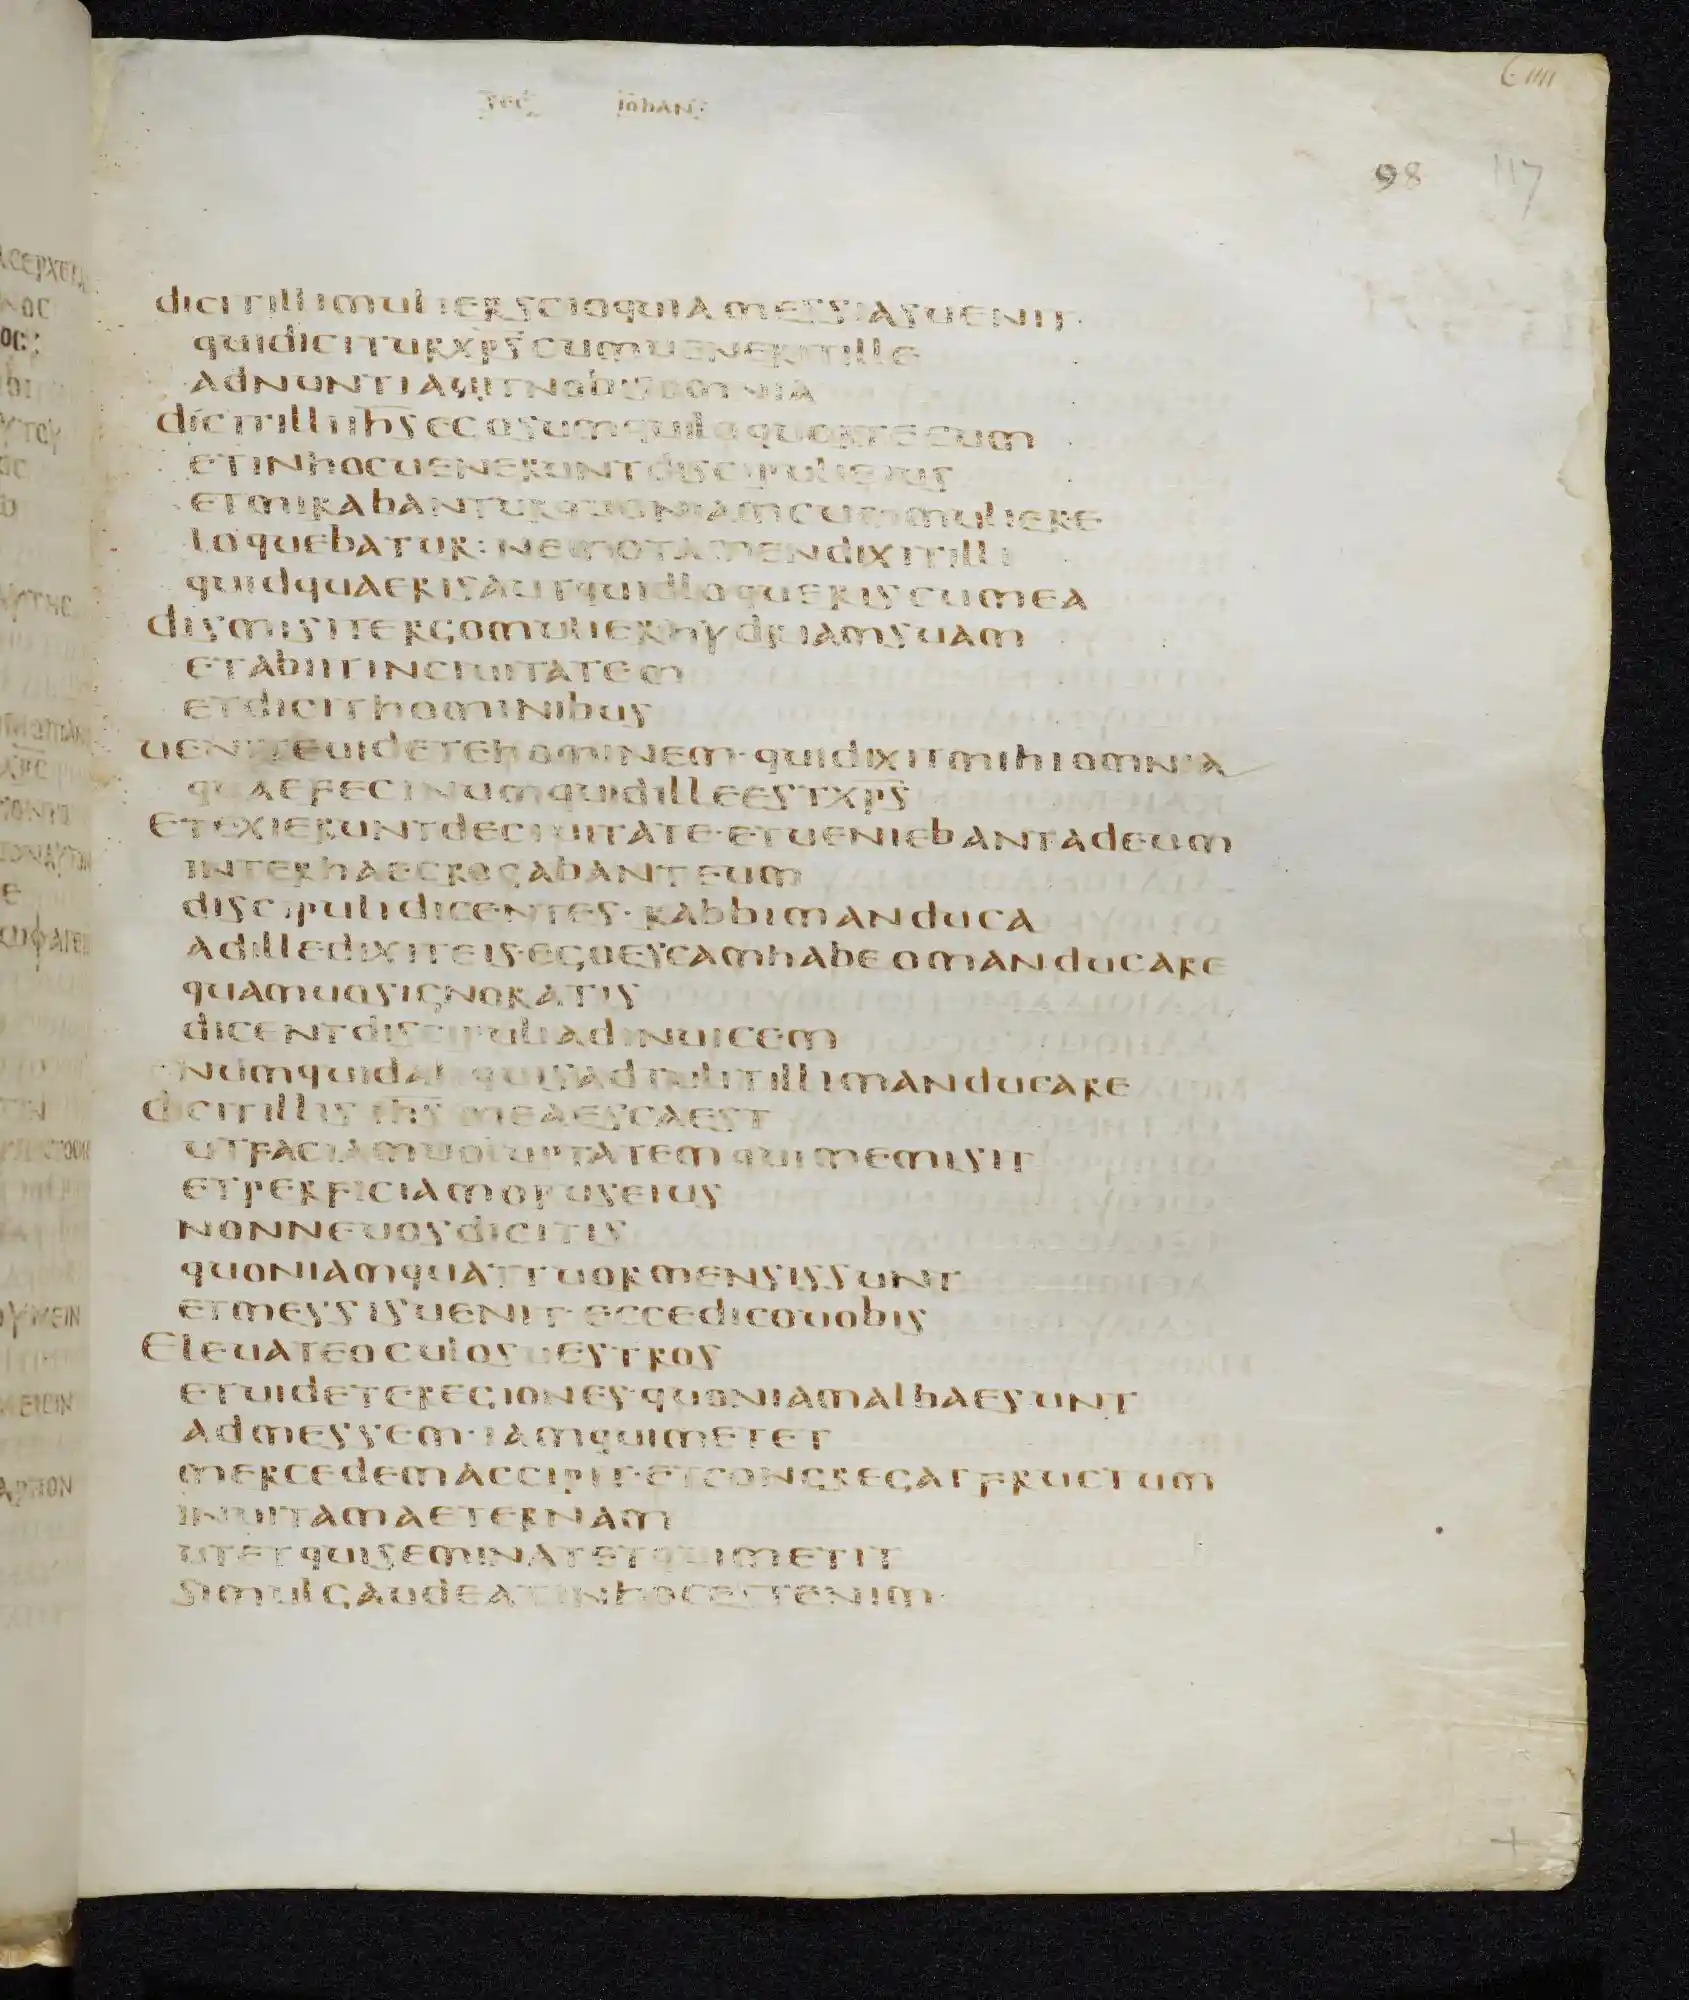 sec iohan
Ciiii
98 117
dicit illi mulier scio quia messias uenit·
qui dicitur xp̅s cum uenerit ille
adnuntiauit nobis omnia
dicit illi ih̅s ego sum qui loquor tecum
et in hoc uenerunt discipuli eius
et mirabantur quoniam cum muliere
loquebatur: nemo tamen dixit illi
quid quaeris aut quid loqueris cum ea
dismisit ergo mulier hydriam suam
et abiit in ciuitatem
et dicit hominibus
uenite uidete hominem· qui dixit mihi omnia
quae feci numquid ille est xp̅s
et exierunt de ciuitate· et ueniebant ad eum
inter haec rogabant eum
discipuli dicentes· rabbi manduca
ad ille dixit eis· ego escam habeo manducare
quam uos ignoratis
dicent discipuli ad inuicem
numquid aliquis adtulit illi manducare
dicit illis ih̅s mea esca est
ut faciam uoluptatem qui me misit
et perficiam opus eius
nonne uos dicitis
quoniam quattuor mensis sunt
et messis uenit· ecce dico uobis
Eleuate oculos uestros
et uidete regiones· quoniam albae sunt
ad messem· iam qui metet
mercedem accipit· et congregat fructum
in uitam aeternam
ut et qui seminat et qui metit
simul gaudeat in hoc est enim·